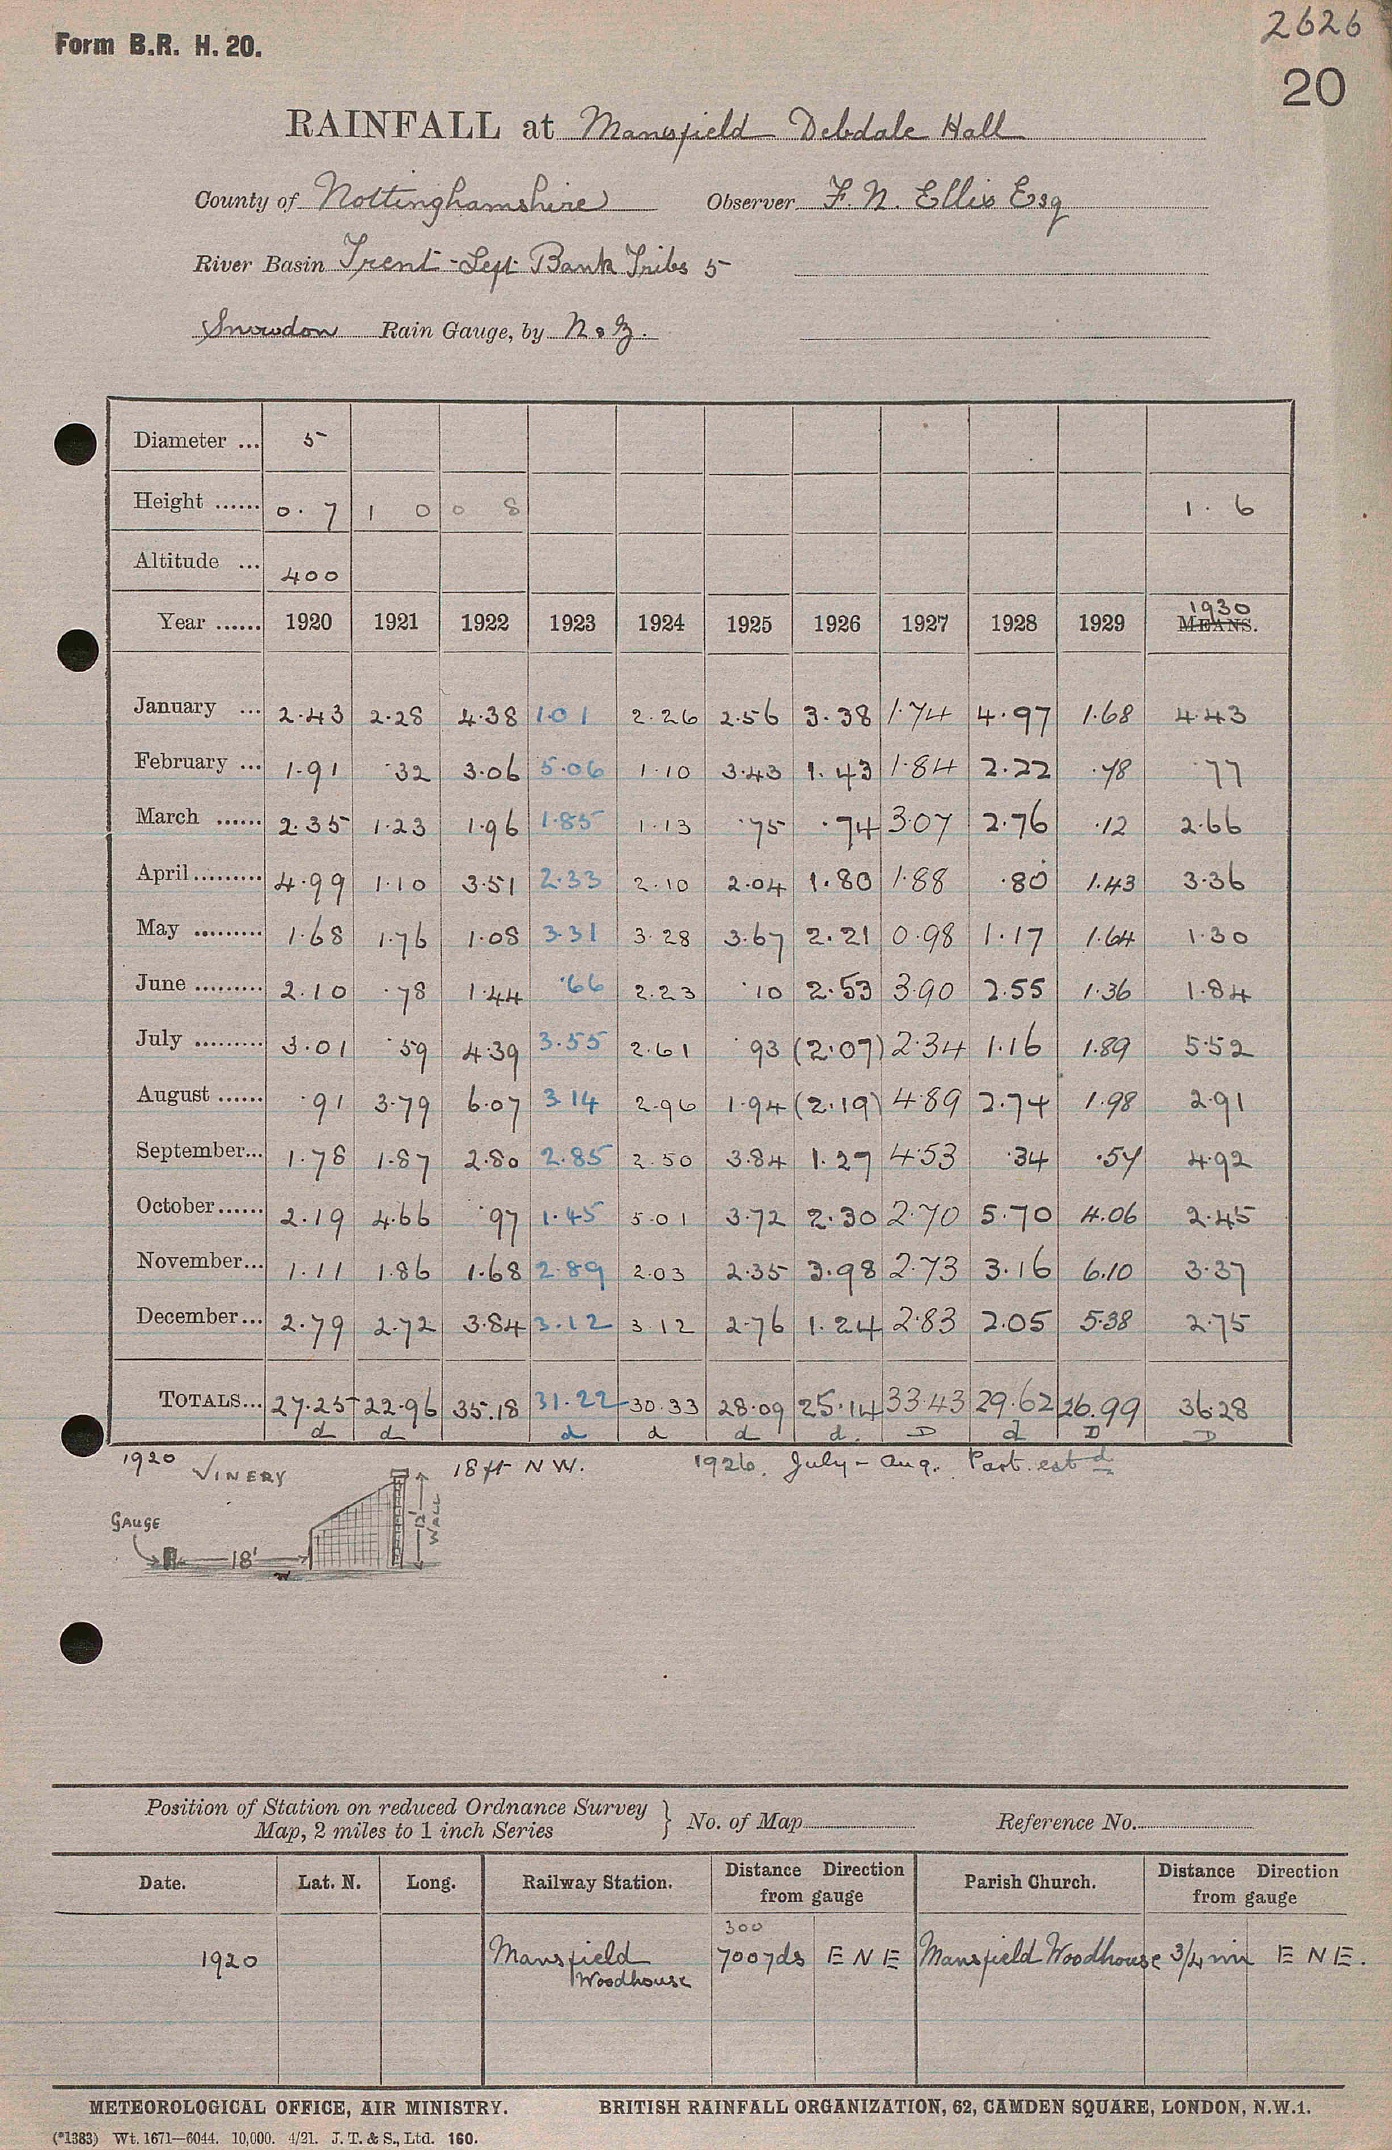 2626
Form B.R. H. 20.
20
RAINFALL at Mansfield Debdale Hall
County of Nottinghamshire Observer F. N. Ellis Esq
River Basin Trent - Left Bank Tribs 5
Snowdon Rain Gauge, by N & Z.
Diameter ... 5
Height ...... 0. 7 1 0 0 8 1. 6
Altitude ... 400
Year ...... 1920 1921 1922 1923 1924 1925 1926 1927 1928 1929 1930 MEANS.
January ... 2.43 2.28 4.38 1.01 2.26 2.56 3.38 1.74 4.97 1.68 4.43
February ... 1.91 .32 3.06 5.06 1.10 3.43 1.43 1.84 2.22 .78 .77
March ...... 2.35 1.23 1.96 1.85 1.13 .75 .74 3.07 2.76 .12 2.66
April......... 4.99 1.10 3.51 2.33 2.10 2.04 1.80 1.88 .80 1.43 3.36
May ......... 1.68 1.76 1.08 3.31 3.28 3.67 2.21 0.98 1.17 1.64 1.30
June ......... 2.10 .78 1.44 .66 2.23 .10 2.53 3.90 2.55 1.36 1.84
July ......... 3.01 .59 4.39 3.55 2.61 .93 (2.07) 2.34 1.16 1.89 5.52
August ...... .91 3.79 6.07 3.14 2.96 1.94 (2.19) 4.89 2.74 1.98 2.91
September... 1.78 1.87 2.80 2.85 2.50 3.84 1.27 4.53 .34 .57 4.92
October...... 2.19 4.66 .97 1.45 5.01 3.72 2.30 2.70 5.70 4.06 2.45
November... 1.11 1.86 1.68 2.89 2.03 2.35 3.98 2.73 3.16 6.10 3.37
December... 2.79 2.72 3.84 3.12 3.12 2.76 1.24 2.83 2.05 5.38 2.75
TOTALS... 27.25 22.96 35.18 31.22 30.33 28.09 25.14 33.43 29.62 26.99 36.28
d d d d d d. D d D D
1920 VINERY 18 ft NW. 1926. July - Aug. Part. estd
GAUGE
18'
12'
WALL
Position of Station on reduced Ordnance Survey
Map, 2 miles to 1 inch Series } No. of Map Reference No.
Date. Lat. N. Long. Railway Station. Distance Direction from gauge Parish Church. Distance Direction from gauge
300
1920 Mansfield Woodhouse 700yds E N E Mansfield Woodhouse 3/4 mi E N E.
METEOROLOGICAL OFFICE, AIR MINISTRY. BRITISH RAINFALL ORGANIZATION, 62, CAMDEN SQUARE, LONDON, N.W.1.
(*1383) Wt. 1671—6044. 10,000. 4/21. J. T. & S., Ltd. 160.